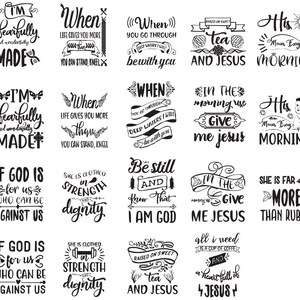 I'M
fearfully
and wonderfully
MADE
When
LIFE GIVES YOU MORE
than
YOU CAN STAND, KNEEL
When
YOU GO THROUGH
DEEP WATERS I WILL
be with you
RAISED ON SWEET
tea
AND JESUS
His
Mercies
MORNIN
I'M
fearfully
and wonderfully
MADE
When
LIFE GIVES YOU MORE
than
YOU CAN STAND, KNEEL
WHEN
YOU GO THROUGH
DEEP WATERS I WILL
be with you
IN THE
morning
GIVE
me jesus
His
MORNIN
IF GOD IS
for us
WHO CAN BE
AGAINST US
SHE IS CLOTHED
in
STRENGTH
and
dignity.
Be still
AND
know That
I AM GOD
IN THE
morning
GIVE
ME JESUS
SHE IS FAR
MORE
THAN RUB
IF GOD IS
for us
WHO CAN BE
AGAINST US
SHE IS CLOTHED
in
STRENGTH
and
dignity.
RAISED ON SWEET
tea
AND JESUS
all i need
IS A CUP OF COFFEE
AND
heart full of
JESUS